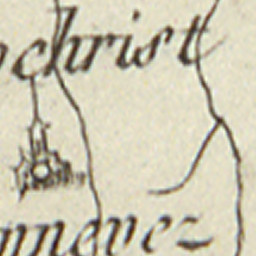 christ
nnevez